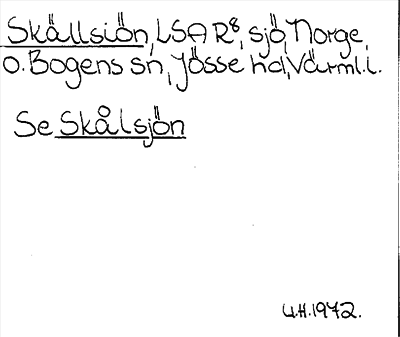 Skällsiön, LSA R8, sjö, Norge,
o. Bogens sn, Jösse hd, Värml. l.
Se Skålsjön
U.H. 1972.